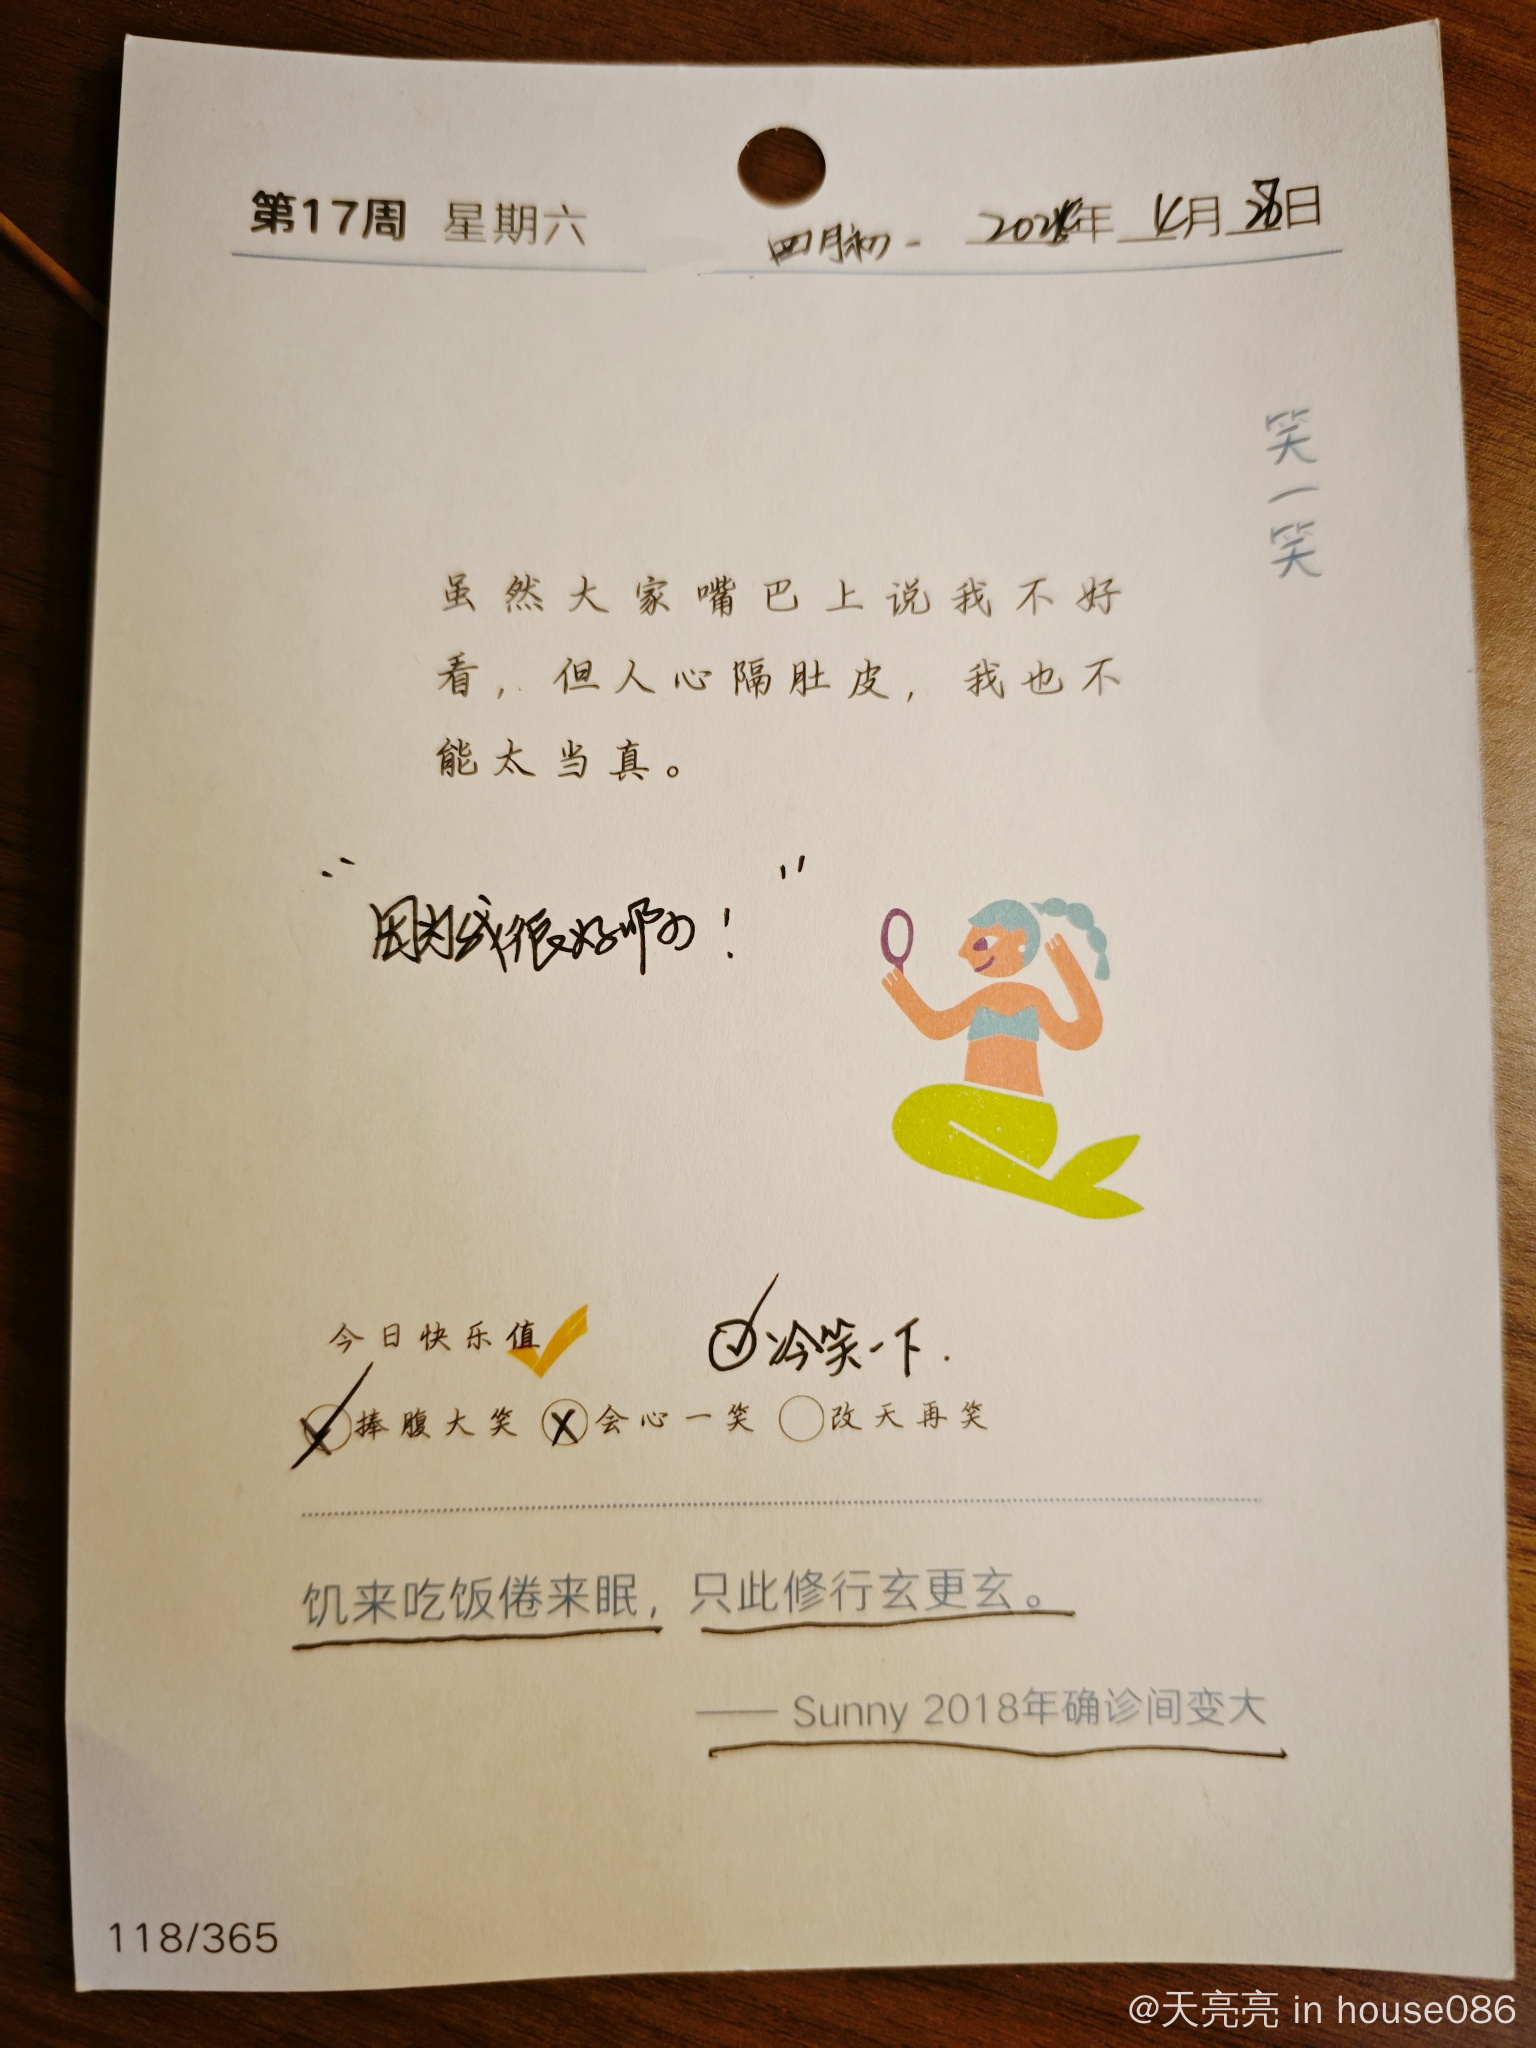 第17周 星期六 四月初一 2025年 4月28日
笑一笑
虽然大家嘴巴上说我不好
看，但人心隔肚皮，我也不
能太当真。
“因为我很好啊！”
今日快乐值 冷笑一下.
捧腹大笑 会心一笑 改天再笑
饥来吃饭倦来眠，只此修行玄更玄。
—— Sunny 2018年确诊间变大
118/365
@天亮亮 in house086